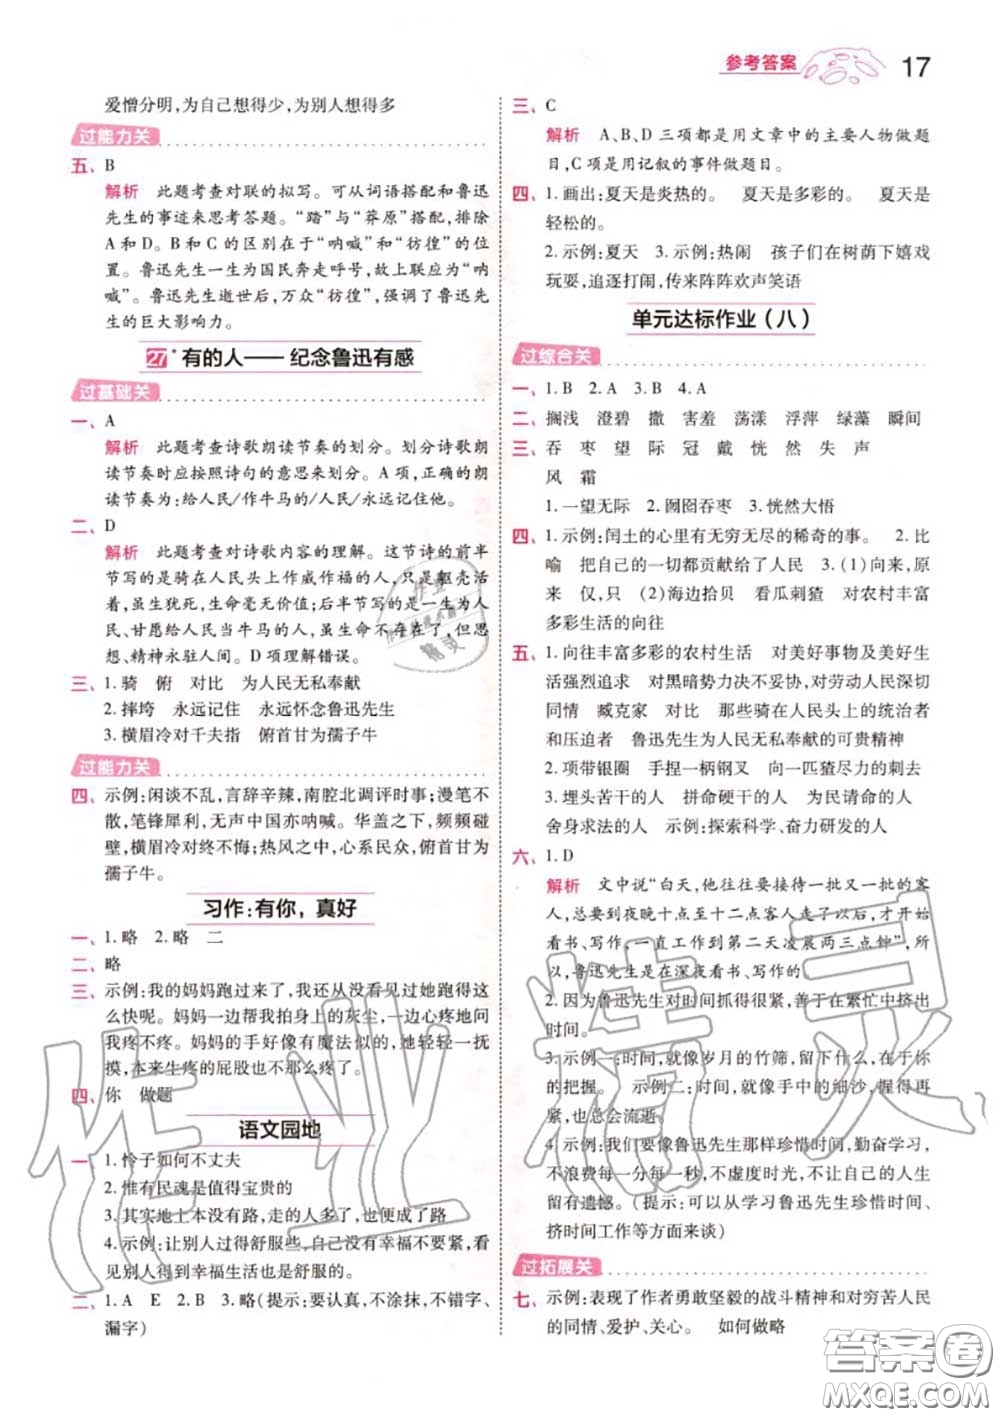 参考答案 17
爱憎分明,为自己想得少,为别人想得多
过能力关
五、B
解析 此题考查对联的拟写。可从词语搭配和鲁迅
先生的事迹来思考答题。“踏”与“莽原”搭配,排除
A和D。B和C的区别在于“呐喊”和“彷徨”的位
置。鲁迅先生一生为国民奔走呼号,故上联应为“呐
喊”。鲁迅先生逝世后,万众“彷徨”,强调了鲁迅先生
的巨大影响力。
27* 有的人—— 纪念鲁迅有感
过基础关
一、A
解析 此题考查诗歌朗读节奏的划分。划分诗歌朗
读节奏时应按照诗句的意思来划分。A项,正确的朗
读节奏为:给人民/作牛马的/人民/永远记住他。
二、D
解析 此题考查对诗歌内容的理解。这节诗的前半
节写的是骑在人民头上作威作福的人,只是躯壳活
着,虽生犹死,生命毫无价值;后半节写的是为人
民、甘愿给人民当牛马的人,虽生命不存在了,但思
想、精神永驻人间。D项理解错误。
三、1.骑 俯 对比 为人民无私奉献
2.摔垮 永远记住 永远怀念鲁迅先生
3.横眉冷对千夫指 俯首甘为孺子牛
过能力关
四、示例:闲谈不乱,言辞辛辣,南腔北调评时事;漫笔不
散,笔锋犀利,无声中国亦呐喊。华盖之下,频频碰
壁,横眉冷对终不悔;热风之中,心系民众,俯首甘为
孺子牛。
习作:有你,真好
一、1.略 2.略 二
二、略
三、示例:我的妈妈跑过来了,我还从没看见过她跑得这
么快呢。妈妈一边帮我拍身上的灰尘,一边心疼地问
我疼不疼。妈妈的手好像有魔法似的,她轻轻一抚
摸,本来生疼的屁股也不那么疼了。
四、你 做题
语文园地
一、1.怜子如何不丈夫
2.惟有民魂是值得宝贵的
3.其实地上本没有路,走的人多了,也便成了路
4.示例:让别人过得舒服些,自己没有幸福不要紧,看
见别人得到幸福生活也是舒服的。
二、1.A E 2.B 3.略(提示:要认真,不涂抹,不错字、
漏字)
三、C
解析 A、B、D三项都是用文章中的主要人物做题
目,C项是用记叙的事件做题目。
四、1.画出:夏天是炎热的。 夏天是多彩的。 夏天是
轻松的。
2.示例:夏天 3.示例:热闹 孩子们在树荫下嬉戏
玩耍,追逐打闹,传来阵阵欢声笑语
单元达标作业(八)
过综合关
一、1.B 2.A 3.B 4.A
二、搁浅 澄碧 撒 害羞 荡漾 浮萍 绿藻 瞬间
三、吞 枣 望 际 冠 戴 恍 然 失 声
风 霜
1.一望无际 2.囫囵吞枣 3.恍然大悟
四、1.示例:闰土的心里有无穷无尽的稀奇的事。 2.比
喻 把自己的一切都贡献给了人民 3.(1)向来,原
来 仅,只 (2)海边拾贝 看瓜刺猹 对农村丰富
多彩生活的向往
五、1.向往丰富多彩的农村生活 对美好事物及美好生
活强烈追求 对黑暗势力决不妥协,对劳动人民深切
同情 臧克家 对比 那些骑在人民头上的统治者
和压迫者 鲁迅先生为人民无私奉献的可贵精神
2.项带银圈 手捏一柄钢叉 向一匹猹尽力的刺去
3.埋头苦干的人 拼命硬干的人 为民请命的人
舍身求法的人 示例:探索科学、奋力研发的人
六、1.D
解析 文中说“白天,他往往要接待一批又一批的客
人,总要到夜晚十点至十二点客人走了以后,才开始
看书、写作,一直工作到第二天凌晨两三点钟”,所
以,鲁迅先生是在深夜看书、写作的。
2.因为鲁迅先生对时间抓得很紧,善于在繁忙中挤出
时间。
3.示例一:时间,就像岁月的竹筛,留下什么,在于你
的把握。 示例二:时间,就像手中的细沙,握得再
紧,也总会流逝。
4.示例:我们要像鲁迅先生那样珍惜时间,勤奋学习,
不浪费每一分每一秒,不虚度时光,不让自己的人生
留有遗憾。(提示:可以从学习鲁迅先生珍惜时间、
挤时间工作等方面来谈)
过拓展关
七、示例:表现了作者勇敢坚毅的战斗精神和对穷苦人民
的同情、爱护、关心。 如何做略
作业精灵
答案圈
MXQE.COM